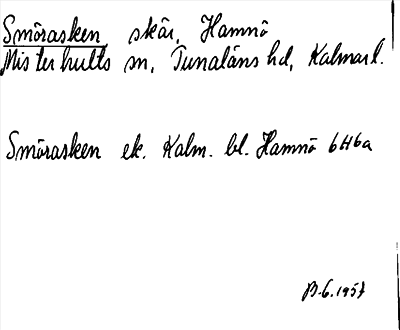 Smörasken skär, Hamnö
Misterhults sn, Tunaläns hd, Kalmar l.
Smörasken ek. Kalm. bl. Hamnö 6H6a
B.G. 1957